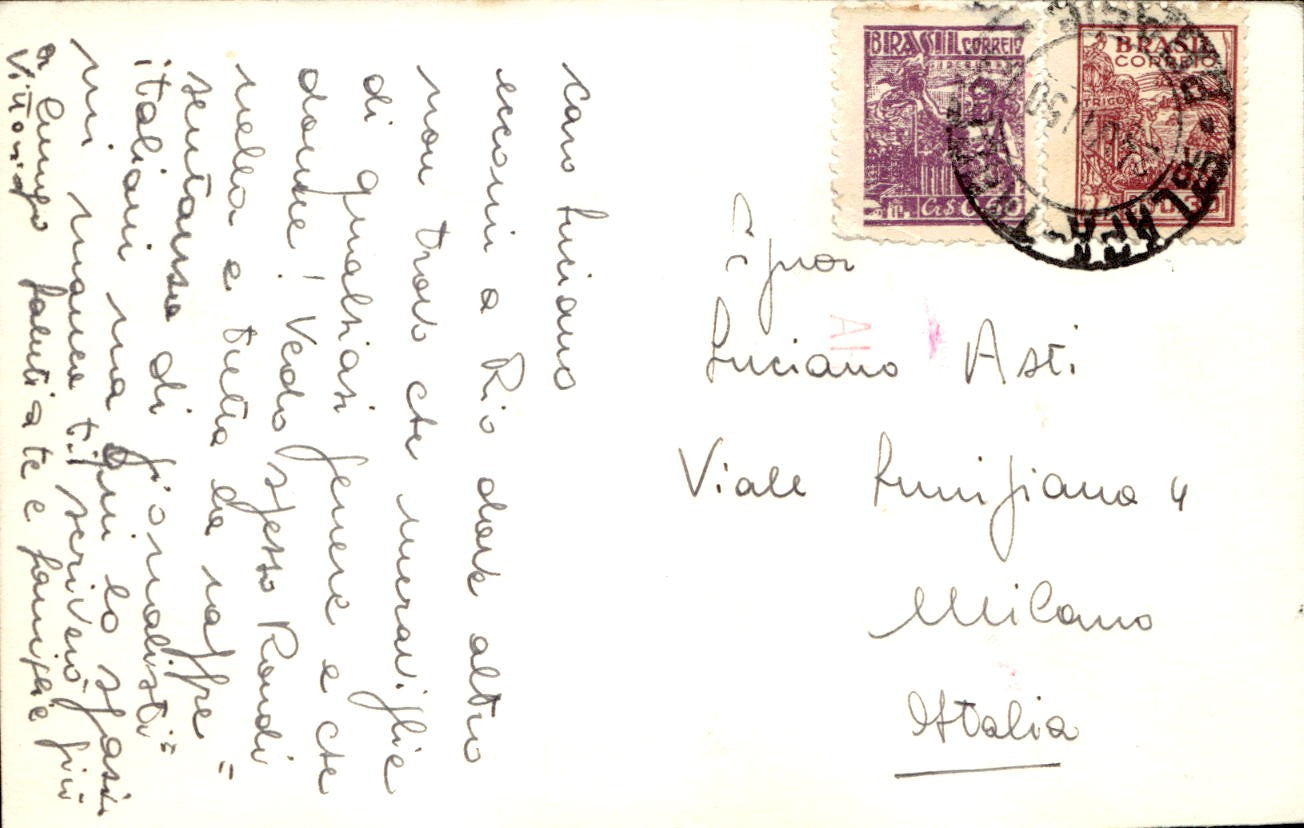 caro Luciano
eccomi a Rio dove altro
non trovo che meraviglie
di qualsiasi genere e che
donne! Vedo spesso Rondi
nella e tutta la rappre=
sentanza di giornalisti
italiani ma qui lo spazio
mi manca ti scriverò più
a lungo saluti a te e famiglia
Vittorio
BRASIL CORREIO
SIDERURGIA
Cr$ 0,60
BRASIL
CORREIO
TRIGO
0,30
Sgnor
Luciano Asti
Viale Lunigiana 4
Milano
Italia